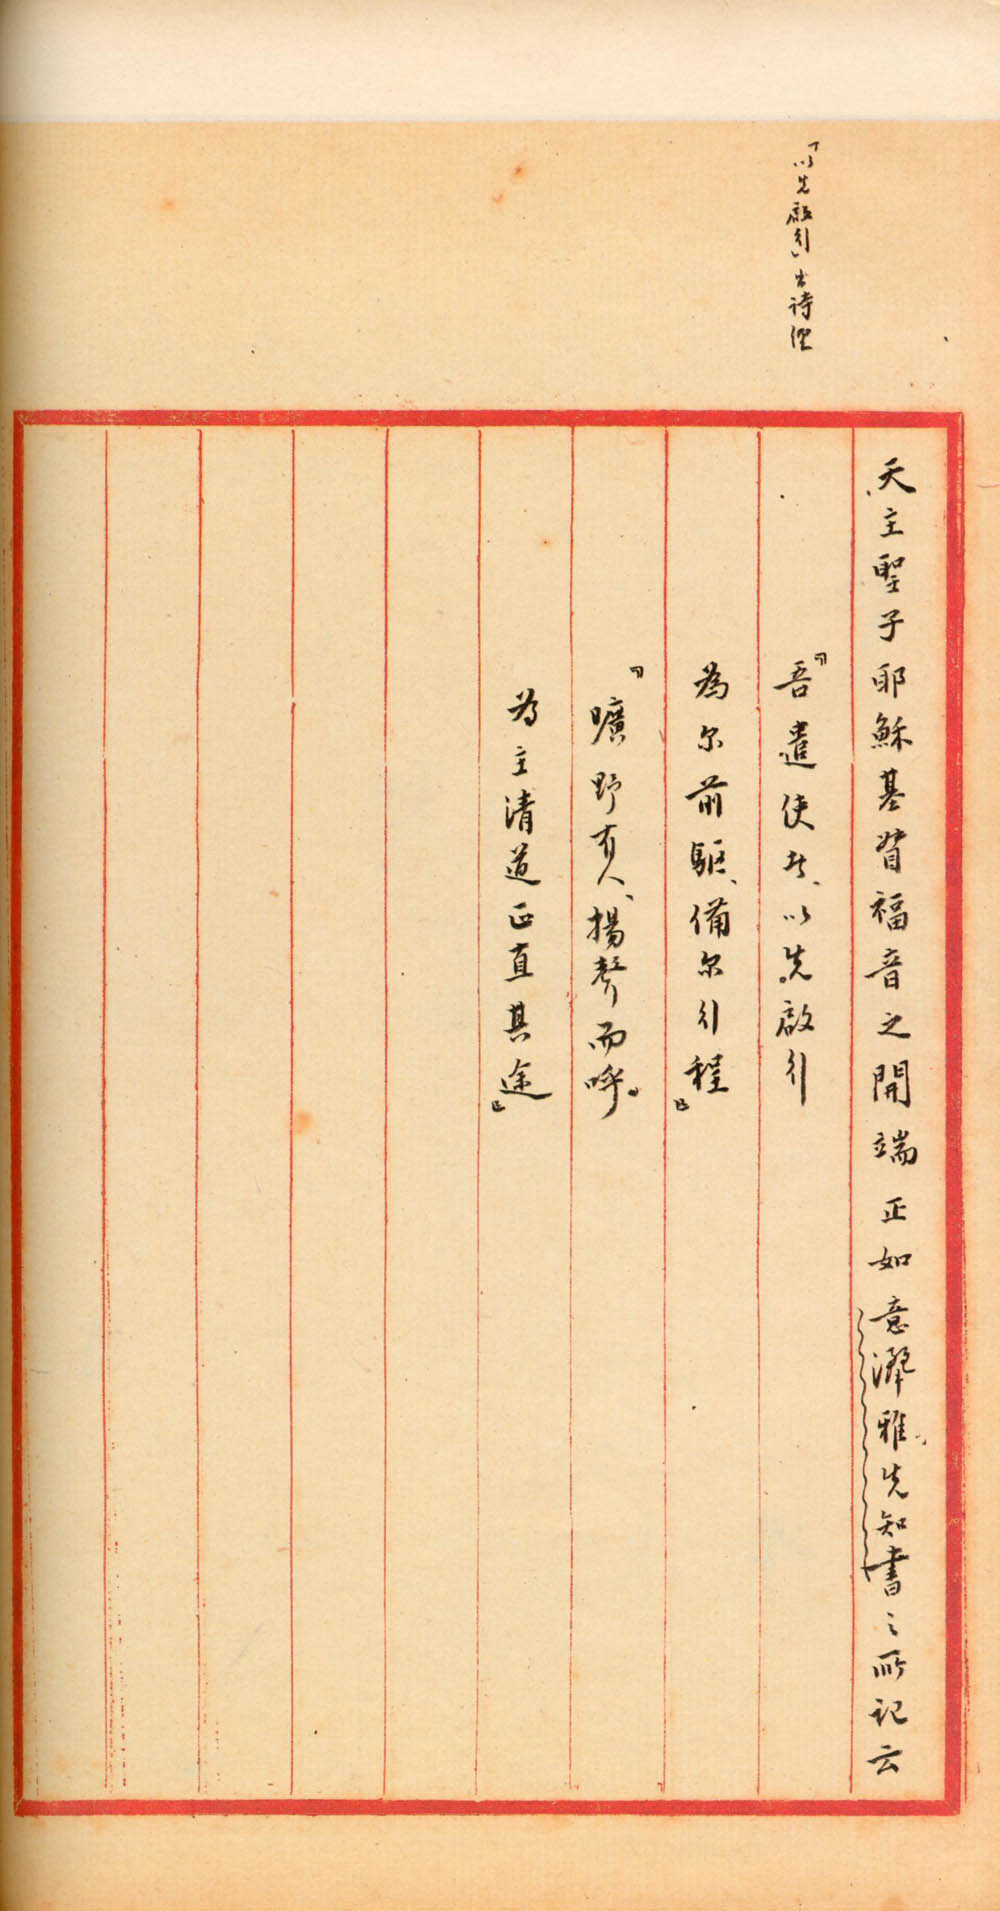 「以先啟行」出詩經
天主聖子耶穌基督福音之開端正如意灑雅先知書之所記云
『吾遣使者、以先啟行
為尔前驅、備尔行程』
『曠野有人、揚聲而呼。
為主清道正直其途』